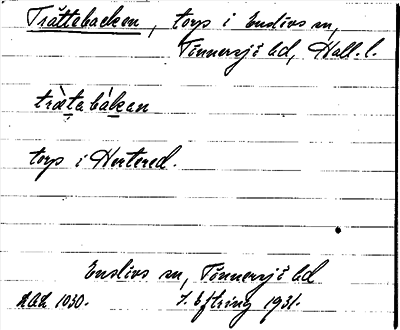 Trättabacken, torp i Enslövs sn,
Tönnersjö hd, Hall. l.
trätabákan
torp i Hertered.
Enslövs sn, Tönnersjö hd
1030. Eftring 1931.